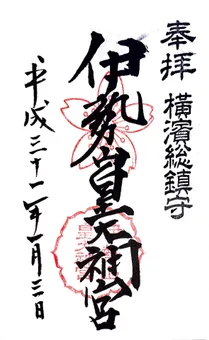 奉拝 横濱総鎮守
伊勢山皇大神宮
平成三十一年一月三日